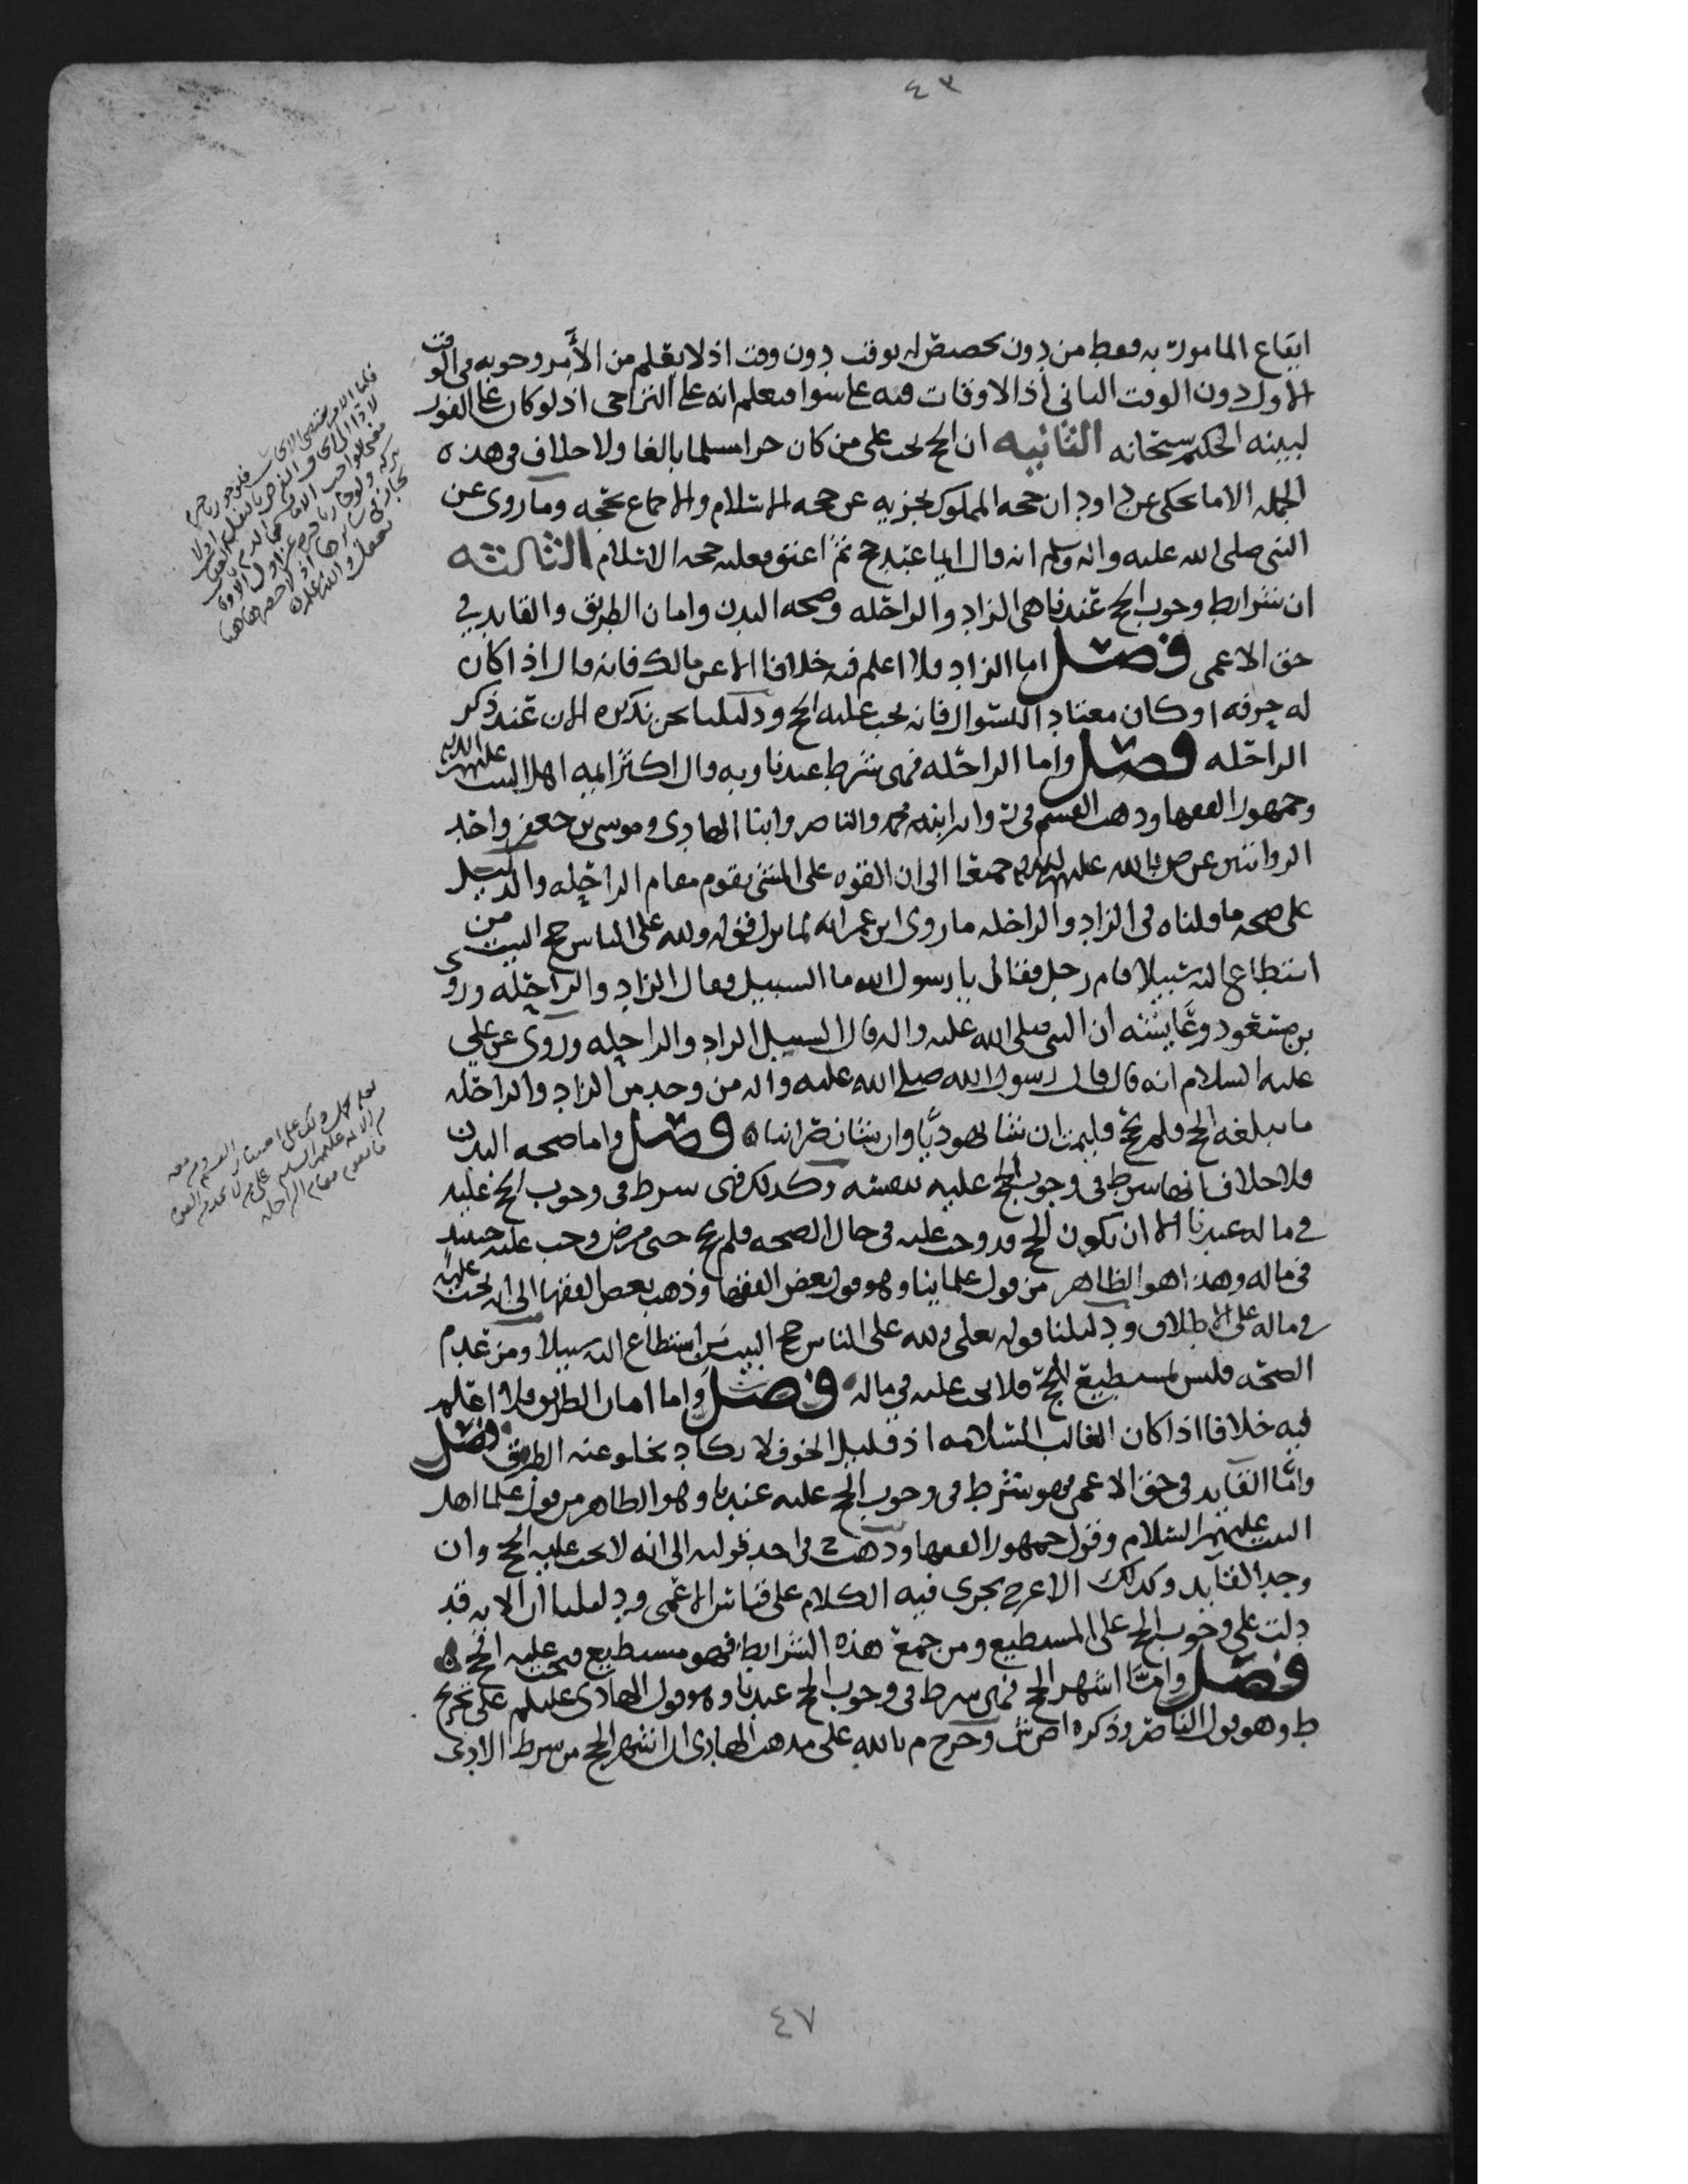 ٤٣
ايقاع المامور به فقط من دون تخصيص له بوقت دون وقت اذ لا يعلم من الأمر وجوبه في الوقت
الاول دون الوقت الثاني اذ الاوقات فيه على سوا فيعلم انه على التراخي اذ لو كان على الفور
لبينه الحكيم سبحانه الثانيه ان الحج يجب على من كان حرا مسلما بالغا ولا خلاف في هذه
الجمله الا ما يحكى عن داود ان حجه المملوك تجزيه عن حجه الاسلام والاجماع يحجه وما روي عن
النبي صلى الله عليه واله وسلم انه قال ايما عبد حج ثم اعتق فعليه حجه الاسلام الثالثه
ان شرايط وجوب الحج عندنا هي الزاد والراحله وصحه البدن وامان الطريق والقايد في
حق الاعمى فصل اما الزاد فلا اعلم فيه خلافا الا عن مالك فانه قال اذا كان
له حرفه او كان معتاد السوال فانه يجب عليه الحج ودليلنا نحن نذكره الان عند ذكر
الراحله فصل واما الراحله فهي شرط عندنا وبه قال اكثر ايمه اهل البيت عليهم السلام
وجمهور الفقها وذهب القسم في روايه ابنه محمد والناصر وابنا الهادي وموسى بن جعفر واحد
الروايتين عن ص بالله عليهم السلام جميعا الى ان القوه على المشي يقوم مقام الراحله والدليل
على صحه ما قلناه في الزاد والراحله ما روى ابن عمر انه لما نزل قوله ولله على الناس حج البيت من
استطاع اليه سبيلا قام رجل فقال يا رسول الله ما السبيل فقال الزاد والراحله وروى
بن مسعود وعايشه ان النبي صلى الله عليه واله قال السبيل الزاد والراحله وروي عن علي
عليه السلام انه قال قال رسول الله صلى الله عليه واله من وجد من الزاد والراحله
ما يبلغه الحج فلم يحج فليمت ان شا يهوديا وان شا نصرانيا فصل واما صحه البدن
فلا خلاف انها شرط في وجوب الحج عليه بنفسه وكذلك فهي شرط في وجوب الحج عليه
في ماله عندنا الا ان يكون الحج قد وجب عليه في حال الصحه فلم يحج حتى مرض وجب عليه حينيذ
في ماله وهذا هو الظاهر من قول علماينا وهو قول بعض الفقها وذهب بعض الفقها الى انه يجب عليه
في ماله على الاطلاق ودليلنا قوله تعلى ولله على الناس حج البيت من استطاع اليه سبيلا ومن عدم
الصحه فليس بمستطيع للحج فلا يجب عليه في ماله فصل واما امان الطريق فلا اعلم
فيه خلافا اذا كان الغالب السلامه اذ قليل الخوف لا يكاد يخلو عنه الطريق فصل
واما القايد في حق الاعمى فهو شرط في وجوب الحج عليه عندنا وهو الظاهر من قول علما اهل
البيت عليهم السلام وقول جمهور الفقها وذهب ح في احد قوليه الى انه لا يجب عليه الحج وان
وجد القايد وكذلك الاعرج يجري فيه الكلام على قياس الاعمى ودليلنا ان الايه قد
دلت على وجوب الحج على المستطيع ومن جمع هذه الشرايط فهو مستطيع فيجب عليه الحج
فصل واما اشهر الحج فهي شرط في وجوب الحج عندنا وهو قول الهادي عليلم على تخريج
ط وهو قول الناصر وذكره اص ش وخرج م بالله على مذهب الهادي ان اشهر الحج من شرط الادى
٤٧